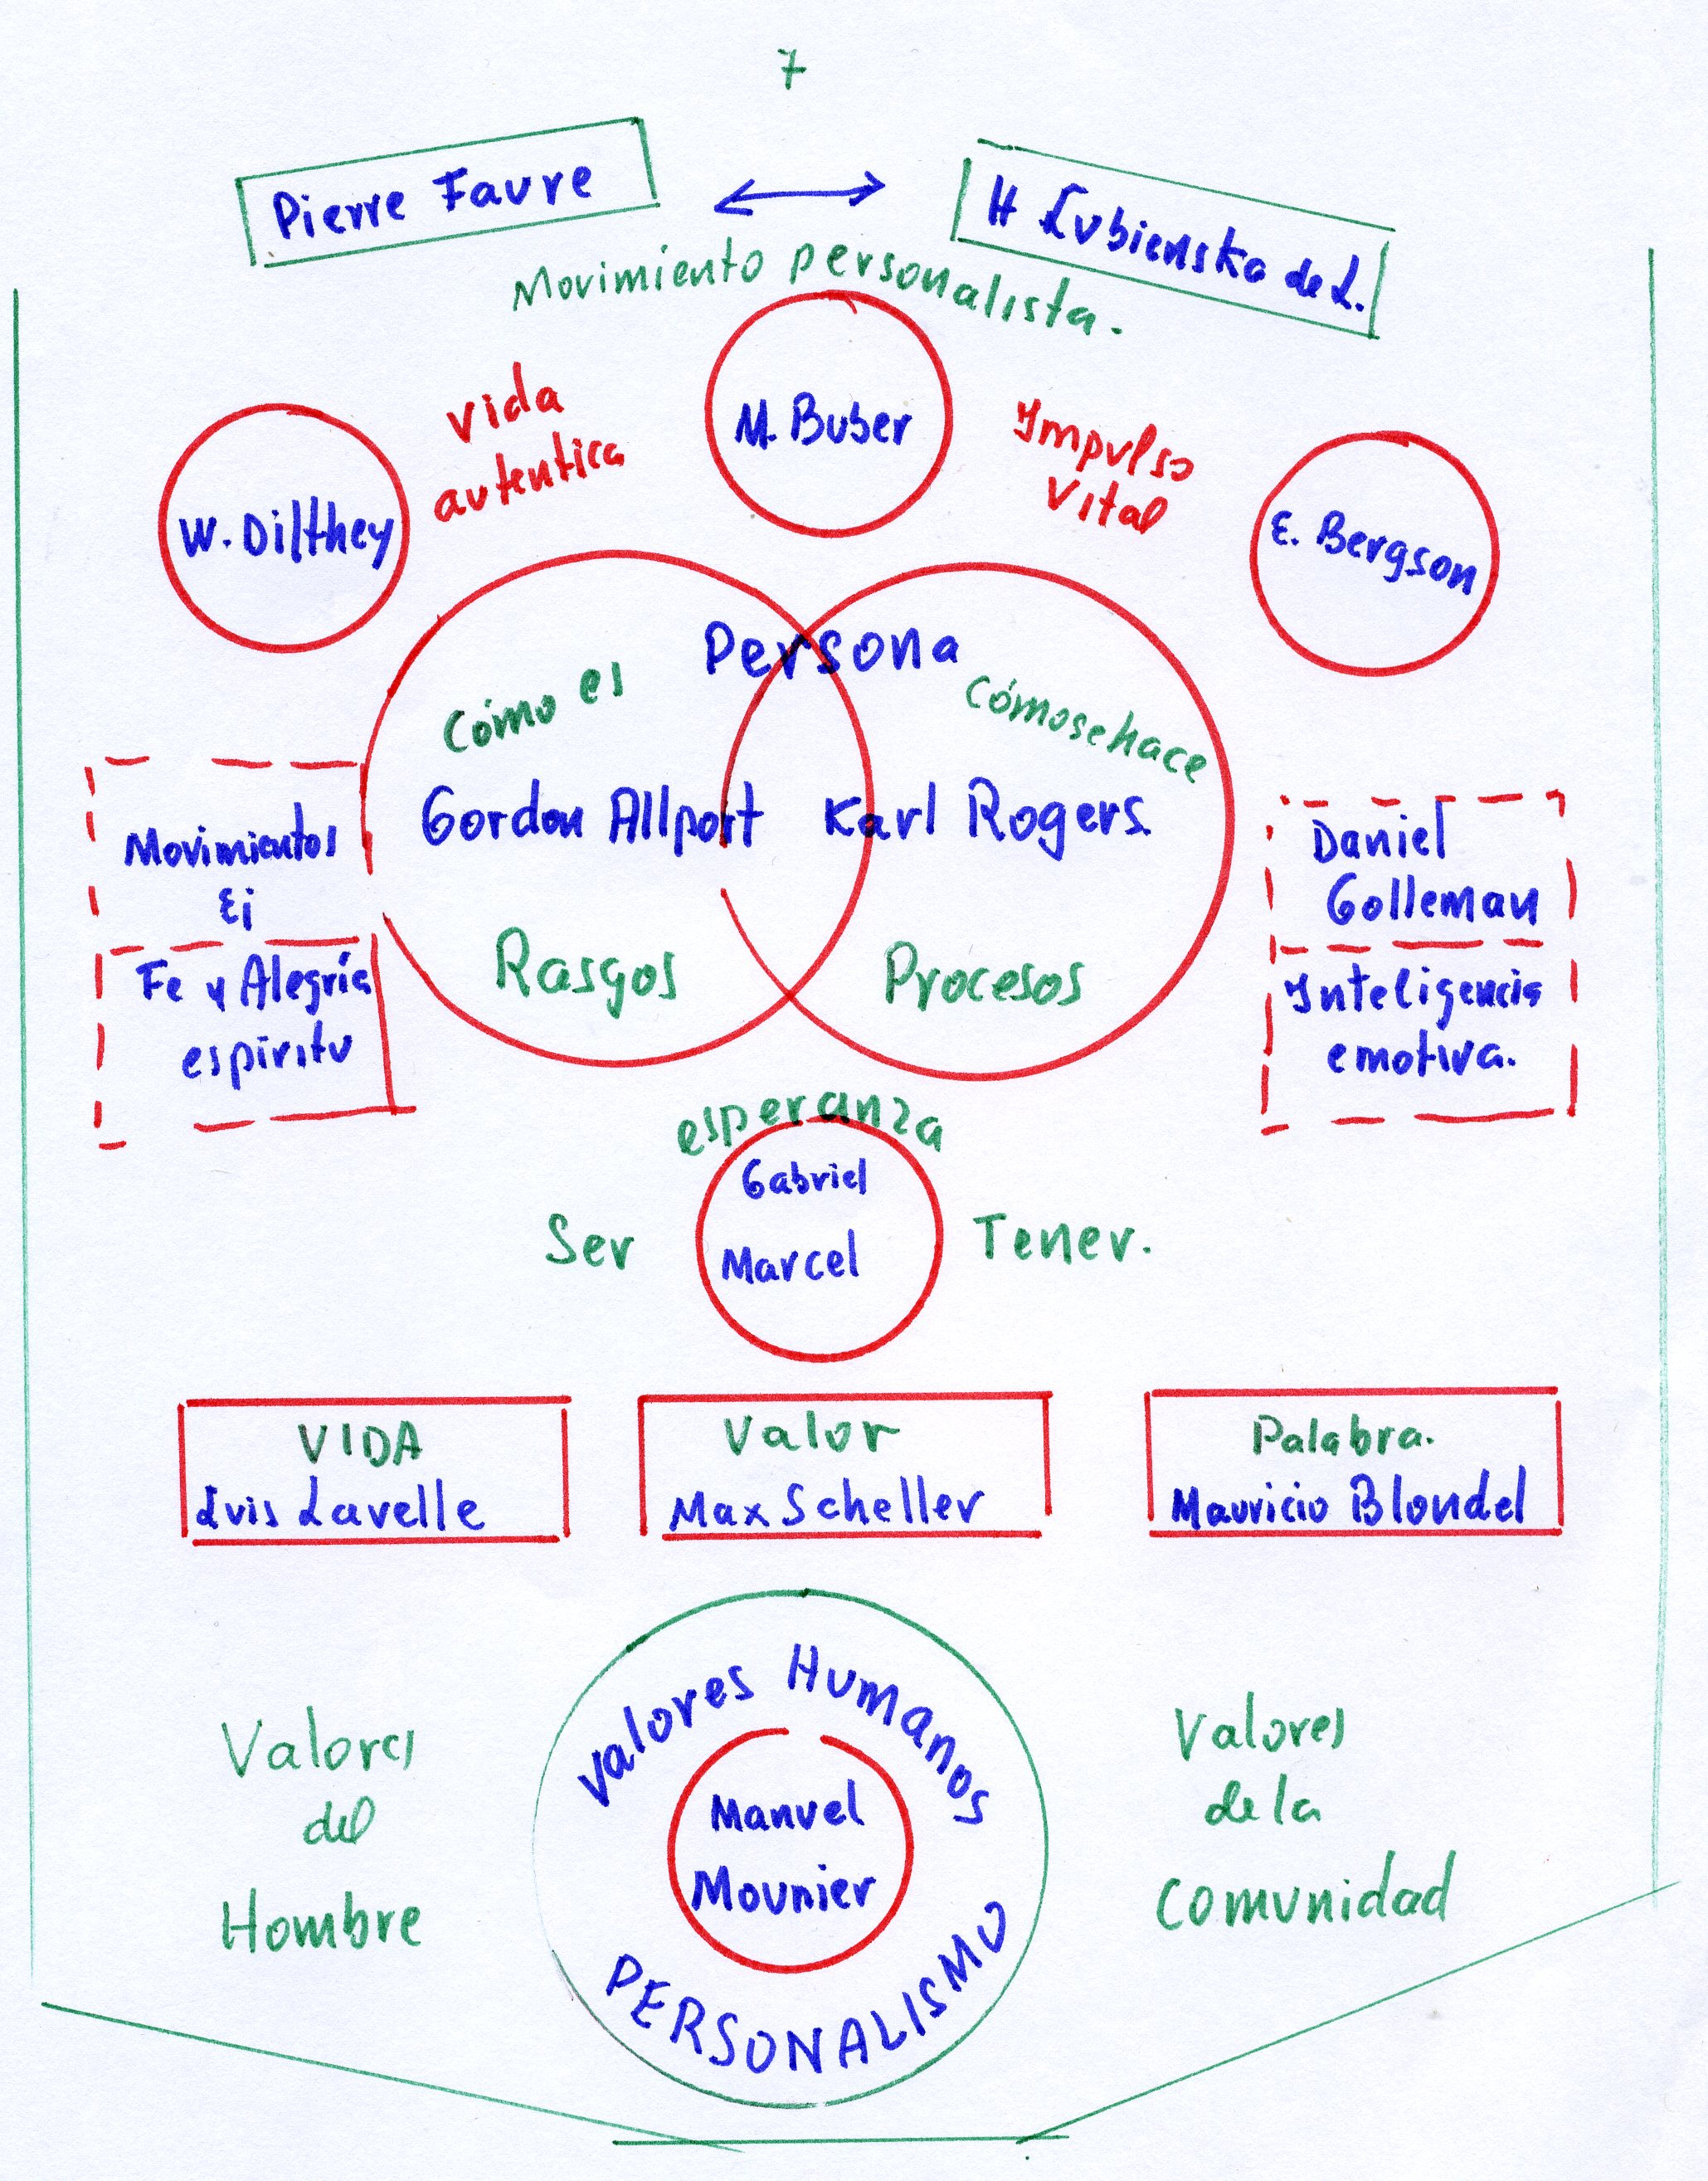 7
Pierre Faure
H Lubienska de L.
Movimiento personalista.
Vida
autentica
M. Buber
Impulso
Vital
W. Dilthey
E. Bergson
Persona
Cómo es
Cómo se hace
Gordon Allport
Karl Rogers.
Rasgos
Procesos
Movimientos
Ei
Fe y Alegría
espiritu
Daniel
Golleman
Inteligencia
emotiva.
esperanza
Gabriel
Marcel
Ser
Tener.
VIDA
Luis Lavelle
Valor
Max Scheller
Palabra.
Mauricio Blondel
Valores Humanos
Manuel
Mounier
PERSONALISMO
Valores
del
Hombre
Valores
de la
Comunidad